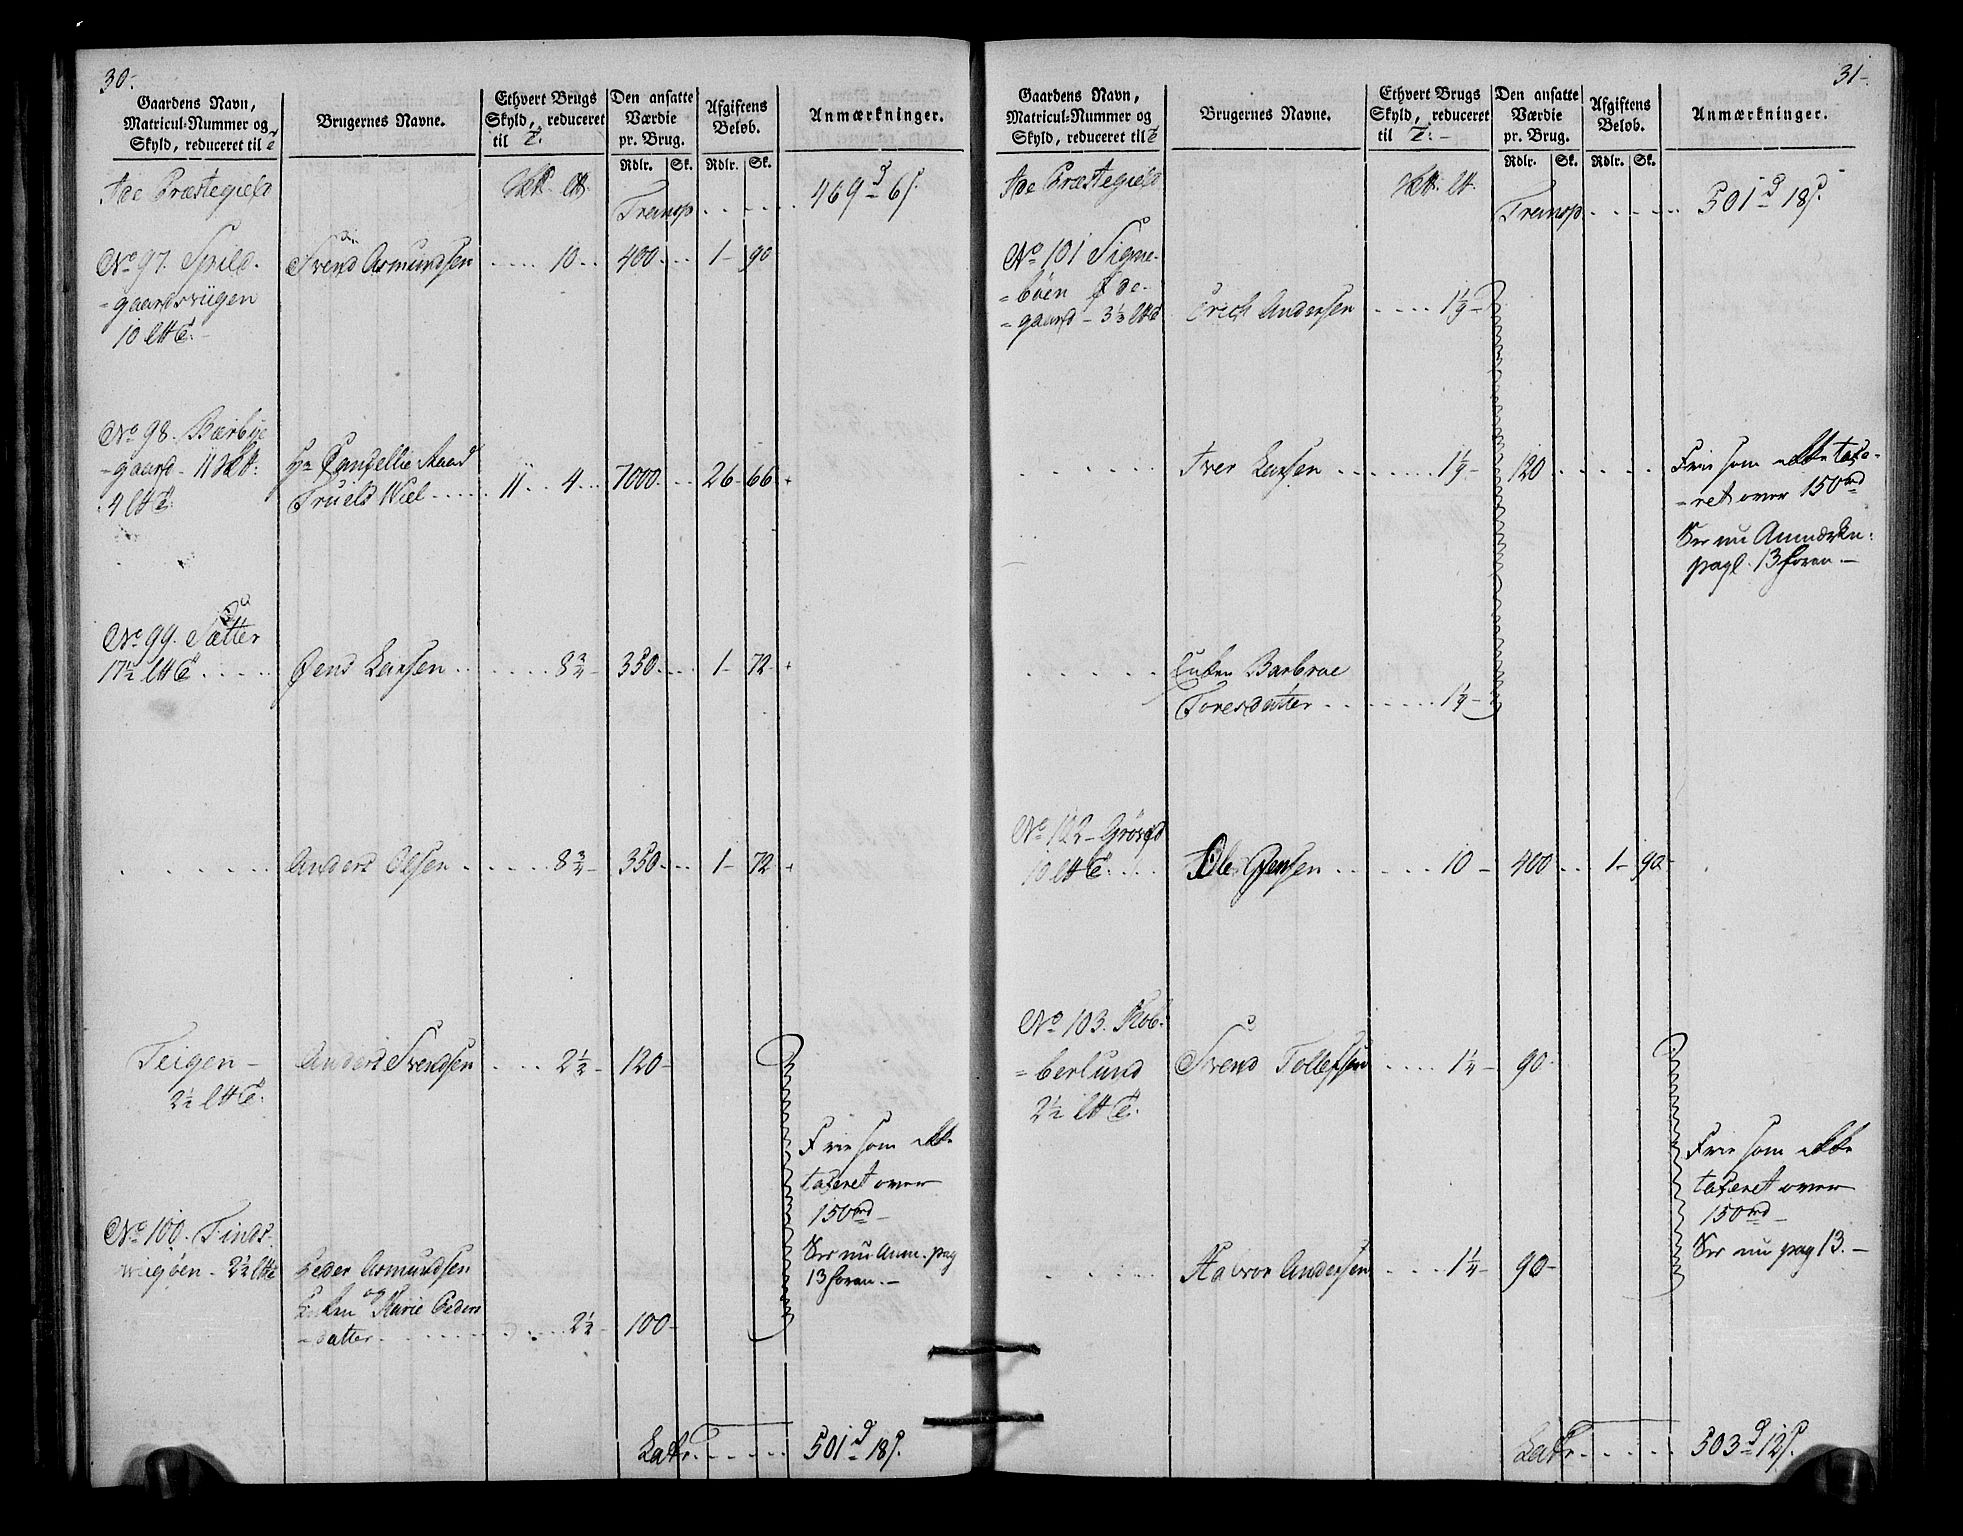 30.
Gaardens Navn,
Matricul-Nummer og
Skyld, reduceret til
Brugernes Navne.
Ethvert Brugs
Skyld, reduceret
til
Den ansatte
Værdie
pr. Brug.
Rdlr. Sk.
Afgiftens
Beløb.
Rdlr. Sk.
Anmærkninger.
Ide Præstegield
Transp. . . . . . 469 d 6 s.
No 97. Spild-
-gaardsviigen
10
Svend Asmundsen . . . . . 10 . . 400 . . . 1 - 90
No 98. Bærbye
-gaard - 11
4
Hr Cancellie Raad
Truels Wiel . . . . . 11 . . 4 . . . 7000 . . . 26 - 66
No 99. Sætter
17½ . . . . .
Jens Larsen . . . . . . 8¾ - 350 . . . 1 - 72
Anders Olsen . . . . . . 8¾ - 350 . . . 1 - 72
Teigen -
2½
Anders Svendsen . . . . 2½ - 120 -
Frie som ikke
taxeret over
150 rd -
See nu Anm. pag
13 foran. -
No 100. Tinds-
2½
Peder Asmundsen
og
Enken Marie Peders
-datter . . . . . . 2½ - 100 -
Latr. . . . . . 501 d 18 s.
31 -
Gaardens Navn,
Matricul-Nummer og
Skyld, reduceret til
Brugernes Navne.
Ethvert Brugs
Skyld, reduceret
til
Den ansatte
Værdie
pr. Brug.
Rdlr. Sk.
Afgiftens
Beløb.
Rdlr. Sk.
Anmærkninger.
Ide Præstegield
Transp. . . . . . 501 d 18 s.
No 101 Signe-
-böen Øde-
-gaard - 3½
Erich Andersen . . . . 1
Iver Larsen . . . . . . 1 120 . . . . .
Frie som ikke taxe-
-ret over 150 rd
See nu Anmærkn:
pag. 13 foran. -
Enken Barbroe
Toresdatter . . . . . . 1
No 102 -
10 . . .
Ole Jensen . . . . . 10 - 400 . . 1 - 90 -
No 103. Kob-
-berlund
2½
Svend Tollefsen . . . . 1¼ - 90 -
Frie som ikke
taxeret over
150 rd -
See nu pag 13. -
Halvor Andersen . . . . 1¼ - 90 -
Latr. . . . . . 503 d 12 s.